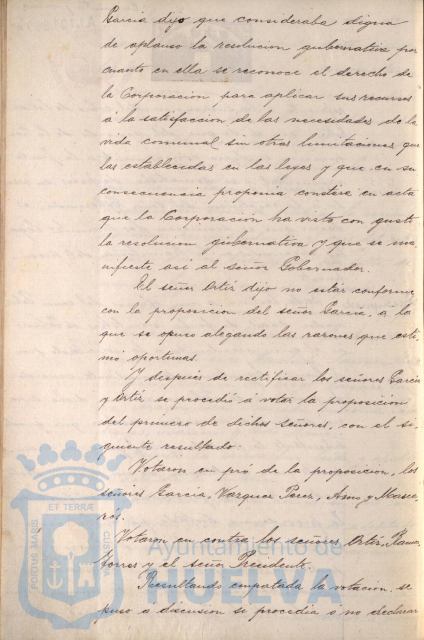 Garcia dijo que consideraba digna
de aplauso la resolucion gubernativa por
cuanto en ella se reconoce el derecho de
la Corporación para aplicar sus recursos
á la satisfacción de las necesidades de la
vida comunal sin otras limitaciones que
las establecidas en las leyes y que en su
consecuencia proponia constase en acta
que la Corporación ha visto con gusto
la resolucion gubernativa y que se ma
nifieste asi al señor Gobernador.
El señor Ortiz dijo no estar conforme
con la proposicion del señor Garcia, á la
que se opuso alegando las razones que esti
mó oportunas.
Y después de rectificar los señores Garcia
y Ortiz se procedió á votar la proposición
del primero de dichos señores, con el si
guiente resultado:
Votaron en pró de la proposicion, los
señores Garcia, Vazquez Perez, y
Votaron en contra los señores Ortiz,
y el señor Presidente.
Resultando empatada la votación, se
puso a discusion se procedia ó no declarar
Ayuntamiento de
HUELVA
PORTUS MARIS
ET TERRÆ
CUSTODIA